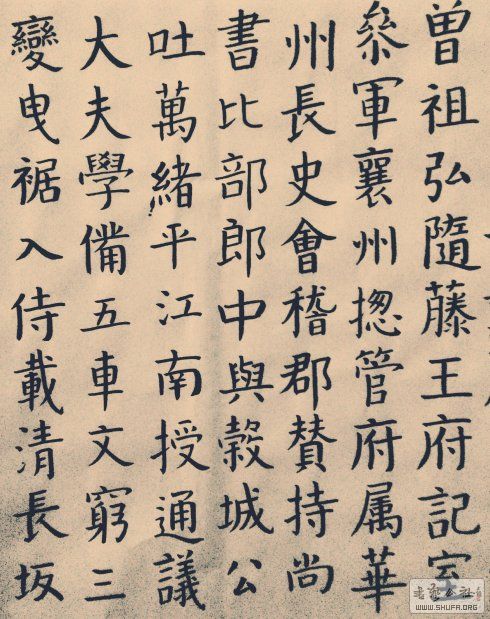 曾祖弘隨藤王府記室
叅軍襄州揔管府属華
州長史會稽郡賛持尚
書比部郎中與榖城公
吐萬緒平江南授通議
大夫學備五車文窮三
變曳裾入侍載清長坂
WWW.SHUFA.ORG